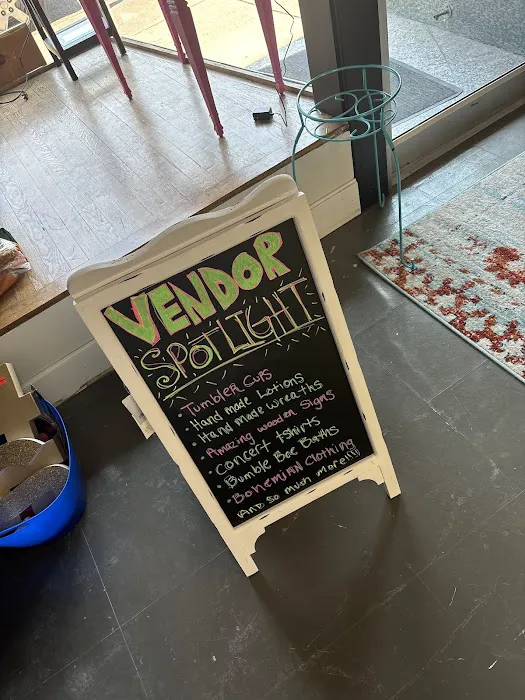 VENDOR
SPOTLIGHT
• Tumbler Cups
• Hand made Lotions
• Hand made wreaths
• Amazing wooden Signs
• Concert tshirts
• Bumble Bee Baths
• Bohemian Clothing
And so much more!!!!